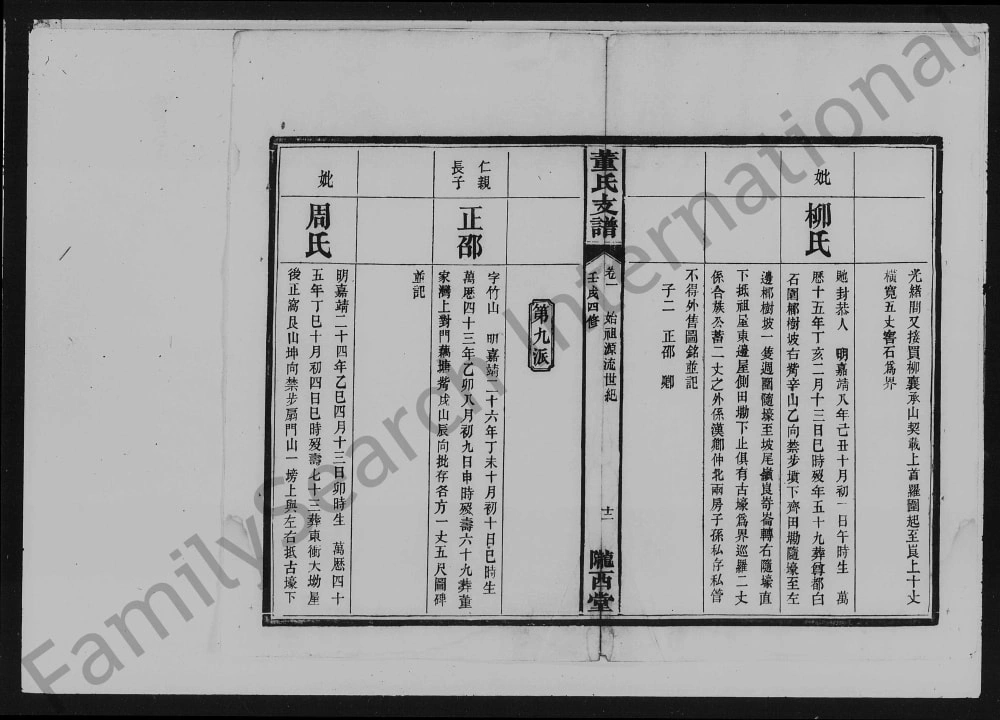 光緒間又接買柳襄承山契載上首羅圍起至崀上十丈
橫寬五丈窖石爲界
妣
柳氏
貤封恭人 明嘉靖八年己丑十月初一日午時生 萬
厯十五年丁亥二月十三日巳時歿年五十九葬尊都白
石圍梛樹坡右觜辛山乙向禁步塡下齊田勘隨壕至左
邊梛樹坡一隻週圍隨壕至坡尾嶺崀嵜崙轉右隨壕直
下抵祖屋東邊屋側田勘下止俱有古壕爲界巡羅二丈
係合族公蓄二丈之外係漢鄉仲北兩房子孫私存私管
不得外售圖銘並記
子二 正邵 鄉
董氏支譜
卷一 始祖源流世紀
壬戌四修
十二
隴西堂
第九派
仁親
長子
正邵
字竹山 明嘉靖二十六年丁未十月初十日巳時生
萬厯四十三年乙卯八月初九日申時歿壽六十九葬董
家灣上對門藕塘觜戌山辰向批存各方一丈五尺圖碑
並記
妣
周氏
明嘉靖二十四年乙巳四月十三日卯時生 萬厯四十
五年丁巳十月初四日巳時歿壽七十三葬東衝大坳屋
後正窩艮山坤向禁步扇門山一塝上與左右抵古壕下
FamilySearch International